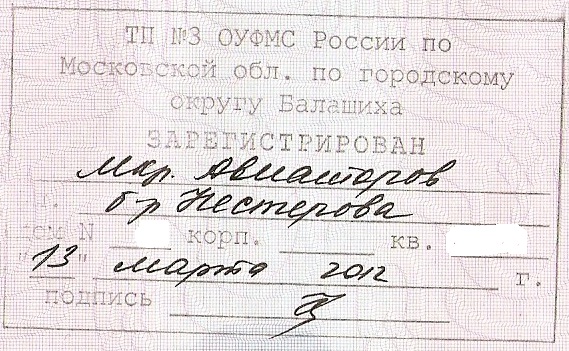 ТП №3 ОУФМС России по
Московской обл. по городскому
округу Балашиха
ЗАРЕГИСТРИРОВАН
мкр. Авиаторов
г. б-р Нестерова
дом N корп. кв.
"13" марта 2012 г.
подпись